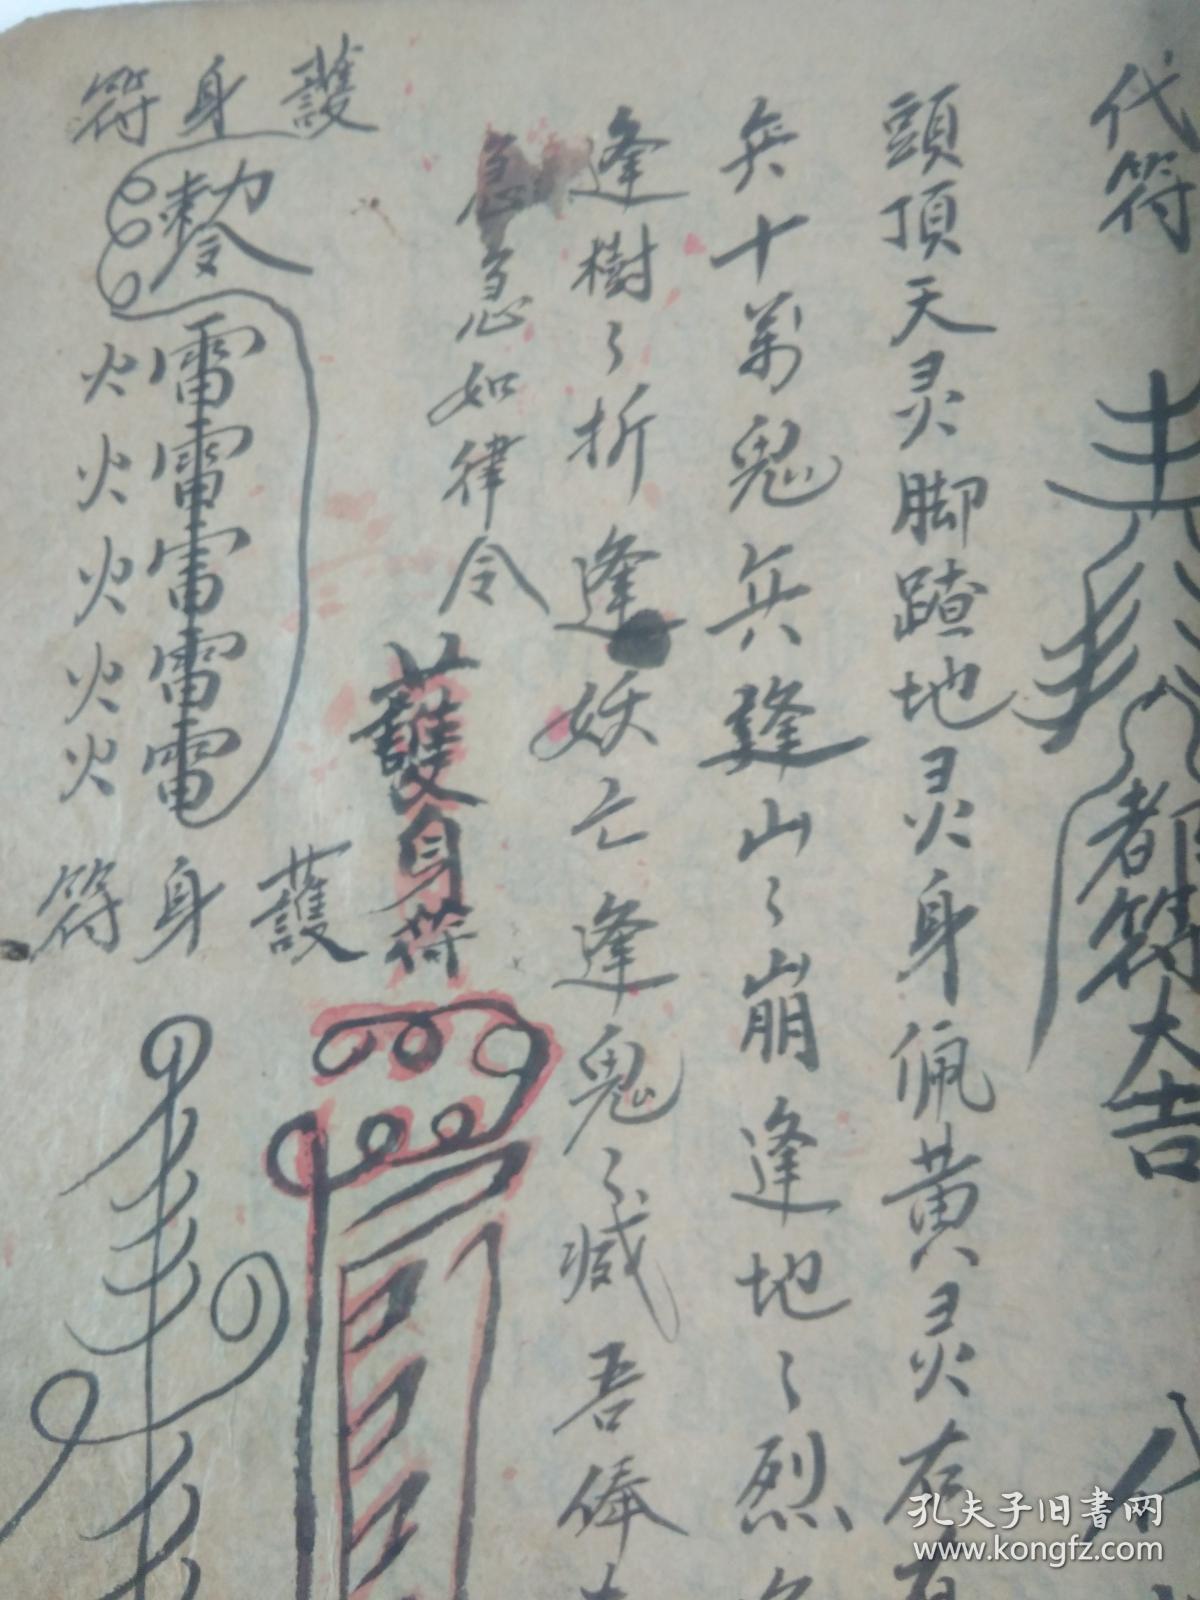 代符
者符大吉
頭頂天灵脚蹅地灵身佩黄灵右有
兵十萬鬼兵逢山〻崩逢地〻烈
逢樹〻折逢妖〻亡逢鬼〻滅吾俸
急急如律令
護身符
護身符
勅令
雷雷雷雷電
火火火火火
護身符
孔夫子旧书网
www.kongfz.com